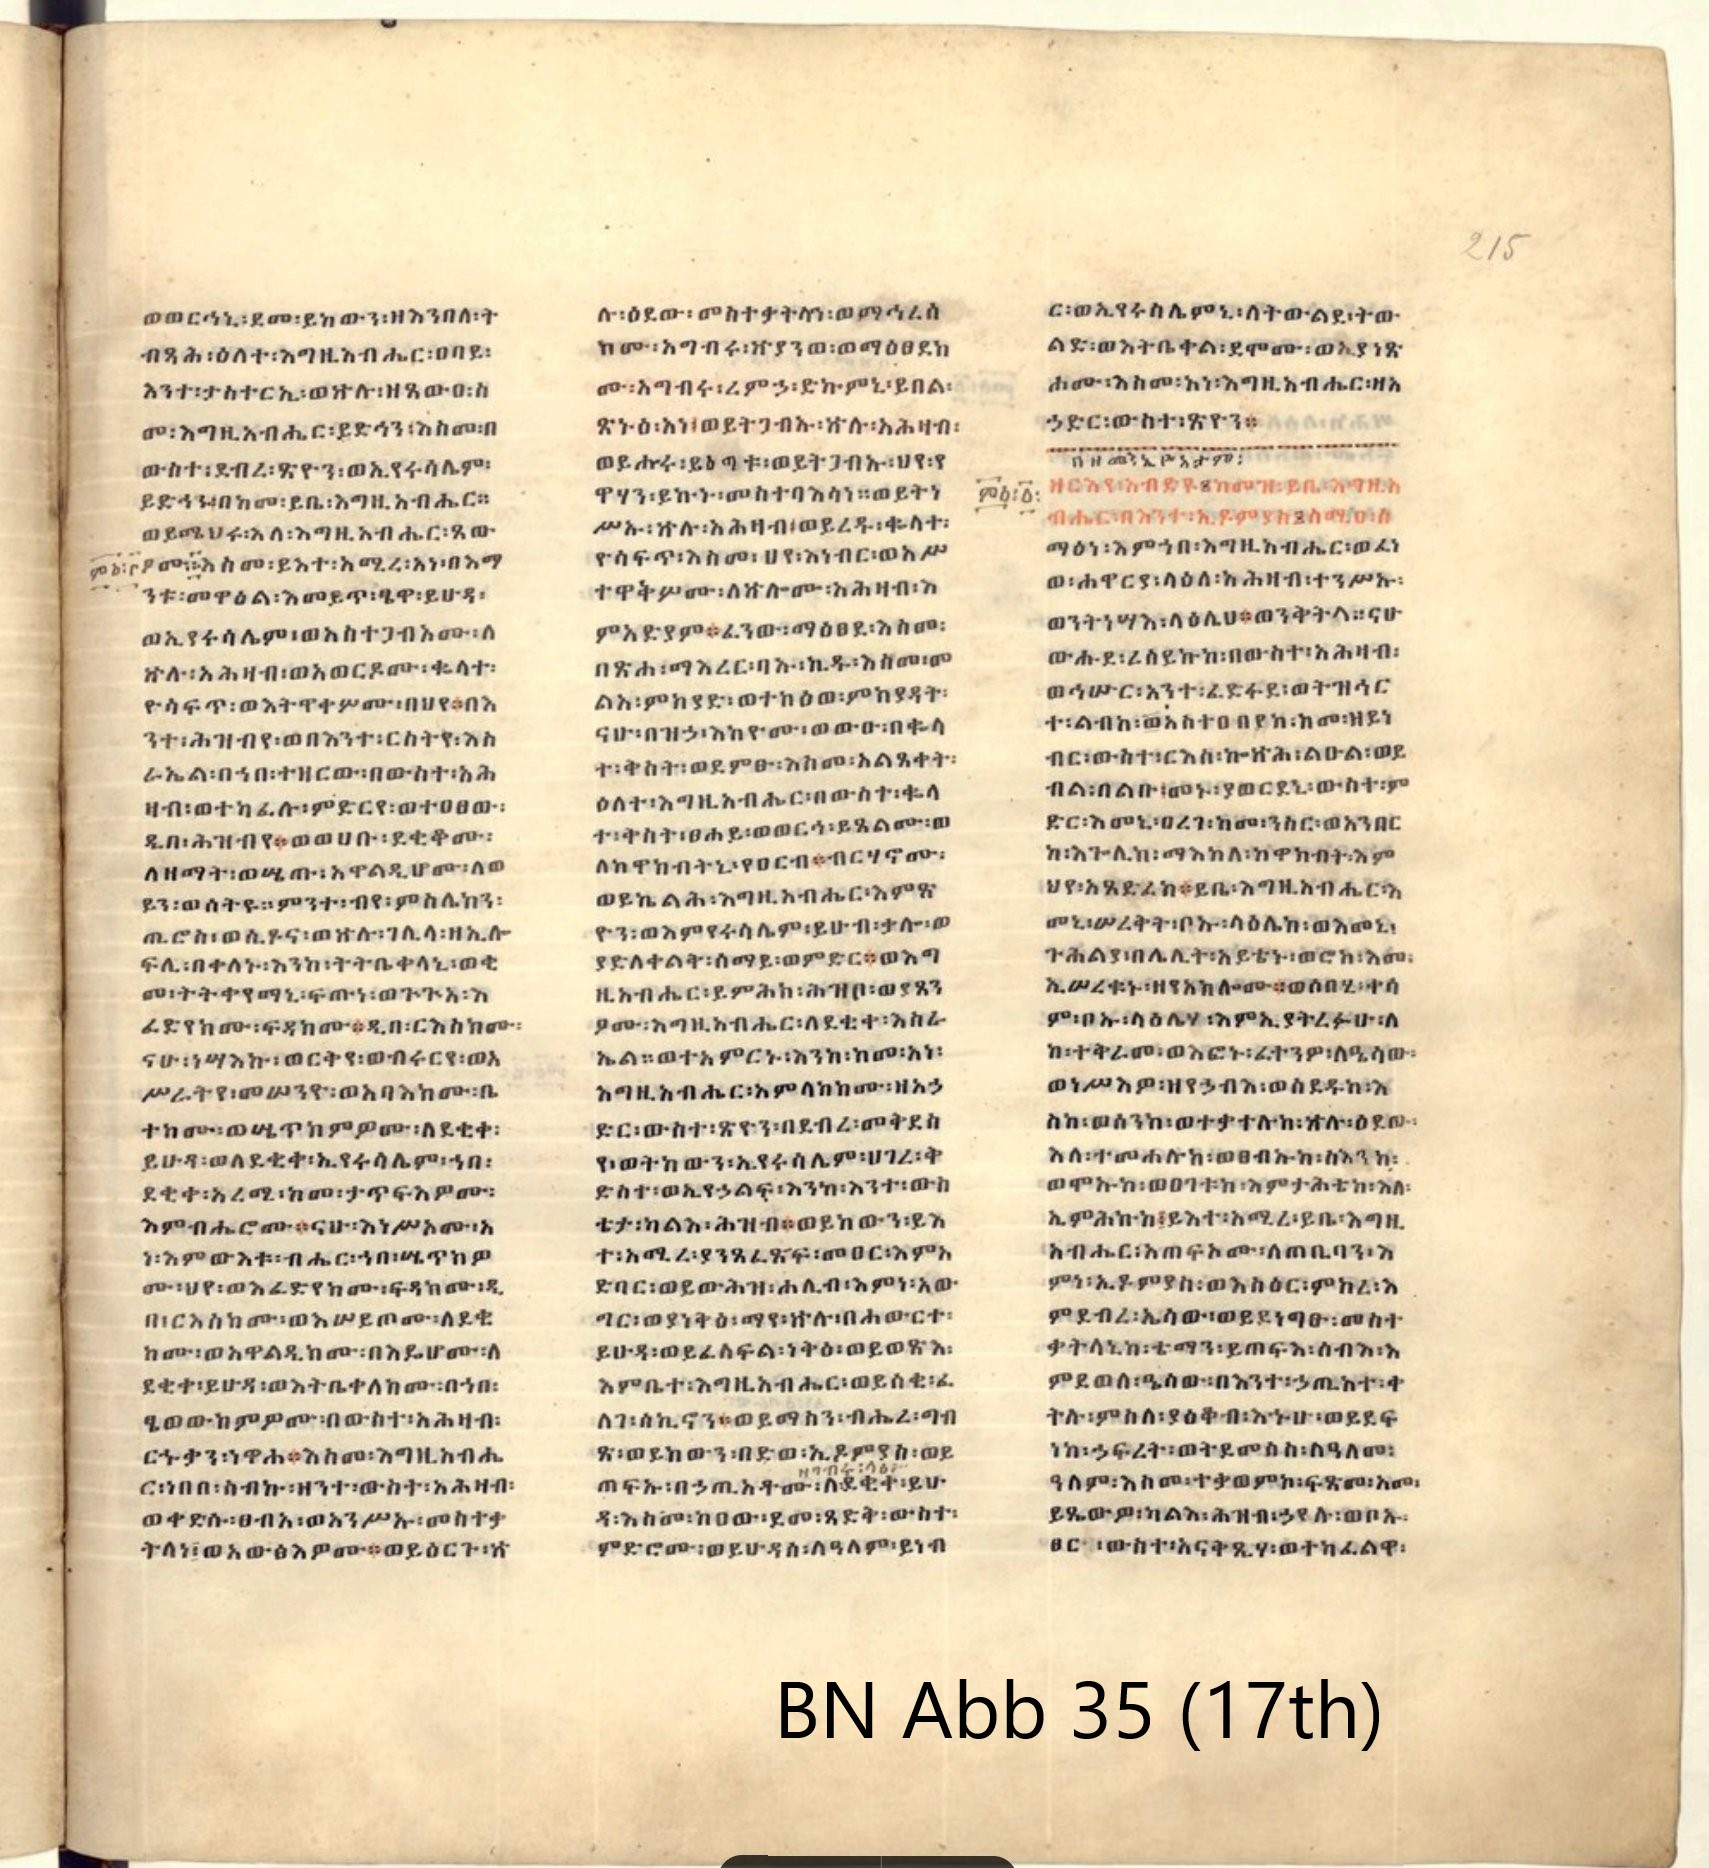 215
ወወርኅኒ፡ደመ፡ይከውን፡ዘእንበለ፡ት
ብጻሕ፡ዕለተ፡እግዚአብሔር፡ዐባይ፡
እንተ፡ታስተርኢ፡ወኵሉ፡ዘጸውዐ፡ስ
መ፡እግዚአብሔር፡ይድኅን፡እስመ፡በ
ውስተ፡ደብረ፡ጽዮን፡ወኢየሩሳሌም፡
ይድኅን፡በከመ፡ይቤ፡እግዚአብሔር።
ወይሜህሩ፡እለ፡እግዚአብሔር፡ጸው
ዖሙ፡እስመ፡ይእተ፡አሚረ፡አነ፡በእማ
ንቱ፡መዋዕል፡እመይጥ፡ፄዋ፡ይሁዳ፡
ወኢየሩሳሌም፡ወአስተጋብኦሙ፡ለ
ኵሉ፡አሕዛብ፡ወአወርዶሙ፡ቈላተ፡
ዮሳፍጥ፡ወእትዋቀሦሙ፡በህየ፡በእ
ንተ፡ሕዝብየ፡ወበእንተ፡ርስትየ፡እስ
ራኤል፡በኀበ፡ተዘርው፡በውስተ፡አሕ
ዛብ፡ወተካፈሉ፡ምድርየ፡ወተዐፀው፡
ዲበ፡ሕዝብየ፡ወወሀቡ፡ደቂቆሙ፡
ለዘማት፡ወሤጡ፡አዋልዲሆሙ፡ለወ
ይን፡ወሰትዩ።ምንተ፡ብየ፡ምስሌክን፡
ጢሮስ፡ወሲዶና፡ወኵሉ፡ገሊላ፡ዘኢሎ
ፍሊ፡በቀለኑ፡እንከ፡ትትቤቀላኒ፡ወቂ
መ፡ትትቀየማኒ፡ፍጡነ፡ወጕጕአ፡እ
ፈድየክሙ፡ፍዳክሙ፡ዲበ፡ርእስክሙ፡
ናሁ፡ነሣእኩ፡ወርቅየ፡ወብሩርየ፡ወአ
ሥራትየ፡መሠንየ፡ወአባእክሙ፡ቤ
ተክሙ፡ወሤጥክምዎሙ፡ለደቂቀ፡
ይሁዳ፡ወለደቂቀ፡ኢየሩሳሌም፡ኀበ፡
ደቂቀ፡አረሚ፡ከመ፡ታጥፍእዎሙ፡
እምብሔሮሙ፡ናሁ፡እነሥኦሙ፡አ
ነ፡እምውእቱ፡ብሔር፡ኀበ፡ሤጥክዎ
ሙ፡ህየ፡ወእፈድየክሙ፡ፍዳክሙ፡ዲ
በ፡ርእስክሙ፡ወእሠይጦሙ፡ለደቂ
ክሙ፡ወአዋልዲክሙ፡በእዴሆሙ፡ለ
ደቂቀ፡ይሁዳ፡ወእትቤቀለክሙ፡በኀበ፡
ፄወውክምዎሙ፡በውስተ፡አሕዛብ፡
ርኁቃን፡ነዋሐ፡እስመ፡እግዚአብሔ
ር፡ነበበ፡ስብኩ፡ዘንተ፡ውስተ፡አሕዛብ፡
ወቀድሱ፡ፀብአ፡ወአንሥኡ፡መስተቃ
ትላነ፡ወአውፅእዎሙ፡ወይዕርጉ፡ኵ
ሉ፡ዕደው፡መስተቃትላነ፡ወማኅረሰ
ክሙ፡አግብሩ፡ኵያንወ፡ወማዕፀደክ
ሙ፡አግብሩ፡ረምኃ፡ድኩምኒ፡ይበል፡
ጽኑዕ፡አነ፡ወይትጋብኡ፡ኵሉ፡አሕዛብ፡
ወይሑሩ፡ይዕጣቱ፡ወይትጋብኡ፡ህየ፡የ
ዋሃን፡ይኩኑ፡መስተባእሳነ።ወይትነ
ሥኡ፡ኵሉ፡አሕዛብ፡ወይረዱ፡ቈላተ፡
ዮሳፍጥ፡እስመ፡ህየ፡እነብር፡ወእሥ
ተዋቅሦሙ፡ለኵሎሙ፡አሕዛብ፡እ
ምአድያም፡ፈንው፡ማዕፀደ፡እስመ፡
በጽሐ፡ማእረር፡ባኡ፡ኪዱ፡እስመ፡መ
ልአ፡ምክያድ፡ወተክዕወ፡ምክያዳት፡
ናሁ፡በዝኃ፡እከዮሙ፡ወውዐ፡በቈላ
ተ፡ቅስት፡ወደምፁ፡እስመ፡አልጸቀት፡
ዕለተ፡እግዚአብሔር፡በውስተ፡ቈላ
ተ፡ቅስት፡ፀሐይ፡ወወርኅ፡ይጸልሙ፡ወ
ለከዋክብትኒ፡የዐርብ፡ብርሃኖሙ፡
ወይኬልሕ፡እግዚአብሔር፡እምጽ
ዮን፡ወእምየሩሳሌም፡ይሁብ፡ቃሎ፡ወ
ያድለቀልቅ፡ሰማይ፡ወምድር፡ወእግ
ዚአብሔር፡ይምሕክ፡ሕዝቦ፡ወያጸን
ዖሙ፡እግዚአብሔር፡ለደቂቀ፡እስራ
ኤል።ወተአምርኑ፡እንከ፡ከመ፡አነ፡
እግዚአብሔር፡አምላክክሙ፡ዘአኃ
ድር፡ውስተ፡ጽዮን፡በደብረ፡መቅደስ
የ፡ወትከውን፡ኢየሩሳሌም፡ሀገረ፡ቅ
ድስተ፡ወኢየኃልፍ፡እንከ፡እንተ፡ውስ
ቴታ፡ካልእ፡ሕዝብ፡ወይከውን፡ይእ
ተ፡አሚረ፡ያንጸፈጽፍ፡መዐር፡እምአ
ድባር፡ወይውሕዝ፡ሐሊብ፡እምነ፡አው
ግር፡ወያነቅዕ፡ማየ፡ኵሉ፡በሐውርተ፡
ይሁዳ፡ወይፈለፍል፡ነቅዕ፡ወይወጽእ፡
እምቤተ፡እግዚአብሔር፡ወይሰቂ፡ፈ
ለገ፡ሰኪኖን፡ወይማስን፡ብሔረ፡ግብ
ጽ፡ወይከውን፡በድወ፡ኢዶምያስ፡ወይ
ጠፍኡ፡በኃጢአቶሙ፡ለደቂቀ፡ይሁ
ዳ፡እስመ፡ከዐው፡ደመ፡ጻድቅ፡ውስተ፡
ምድሮሙ፡ወይሁዳስ፡ለዓለም፡ይነብ
ር፡ወኢየሩሳሌምኒ፡ለትውልደ፡ትው
ልድ፡ወእትቤቀል፡ደሞሙ፡ወኢያነጽ
ሖሙ፡እስመ፡አነ፡እግዚአብሔር፡ዘአ
ኃድር፡ውስተ፡ጽዮን፡
ዘርእየ፡አብድዩ፡ከመዝ፡ይቤ፡እግዚአ
ብሔር፡በእንተ፡ኢዶምያስ፡ሰሚዐ፡ስ
ማዕነ፡እምኀበ፡እግዚአብሔር፡ወፈነ
ወ፡ሐዋርያ፡ላዕለ፡አሕዛብ፡ተንሥኡ፡
ወንትነሣእ፡ላዕሌሁ፡ወንቅትላ።ናሁ
ውሑደ፡ረሰይኩከ፡በውስተ፡አሕዛብ፡
ወኅሡር፡አንተ፡ፈድፋደ፡ወትዝኅር
ተ፡ልብከ፡ወአስተዐበየከ፡ከመ፡ዘይነ
ብር፡ውስተ፡ርእስ፡ኰኵሕ፡ልዑል፡ወይ
ብል፡በልቡ፡መኑ፡ያወርደኒ፡ውስተ፡ም
ድር፡እመኒ፡ዐረገ፡ከመ፡ንስር፡ወአንበር
ከ፡እጐሊከ፡ማእከለ፡ከዋክብት፡እም
ህየ፡አጸድፈከ፡ይቤ፡እግዚአብሔር፡እ
መኒ፡ሠረቅት፡ቦኡ፡ላዕሌከ፡ወእመኒ፡
ጕሕልያ፡በሌሊት፡አይቴኑ፡ወሮከ፡እመ፡
ኢሠረቁኑ፡ዘየአክሎሙ፡ወሶበሂ፡ቀሳ
ም፡ቦኡ፡ላዕሌሃ፡እምኢያትረፉሁ፡ለ
ከ፡ተቅራመ፡ወእፎኑ፡ረተንዎ፡ለዔሳው፡
ወነሥእዎ፡ዘየኃብእ፡ወሰደዱከ፡እ
ስከ፡ወሰንከ፡ወተቃተሉከ፡ኵሉ፡ዕደው፡
እለ፡ተመሐሉከ፡ወፀብኡከ፡ሰእንከ፡
ወሞኡከ፡ወዐገቱከ፡እምታሕቴከ፡እለ፡
ኢምሕኩከ፡ይእተ፡አሚረ፡ይቤ፡እግዚ
አብሔር፡አጠፍኦሙ፡ለጠቢባን፡እ
ምነ፡ኢዶምያስ፡ወእስዕር፡ምክረ፡እ
ምደብረ፡ኤሳው፡ወይደነግፁ፡መስተ
ቃትላኒከ፡ቴማን፡ይጠፍእ፡ሰብእ፡እ
ምደወለ፡ዔሳው፡በእንተ፡ኃጢአተ፡ቀ
ትሉ፡ምስለ፡ያዕቆብ፡እኁሁ፡ወይደፍ
ነከ፡ኃፍረት፡ወትደመሰስ፡ለዓለመ፡
ዓለም፡እስመ፡ተቃወምከ፡ፍጽመ፡አመ፡
ይጼውዎ፡ካልእ፡ሕዝብ፡ኃየሉ፡ወቦኡ፡
ፀር፡ውስተ፡አናቅጺሃ፡ወተካፈልዋ፡
BN Abb 35 (17th)